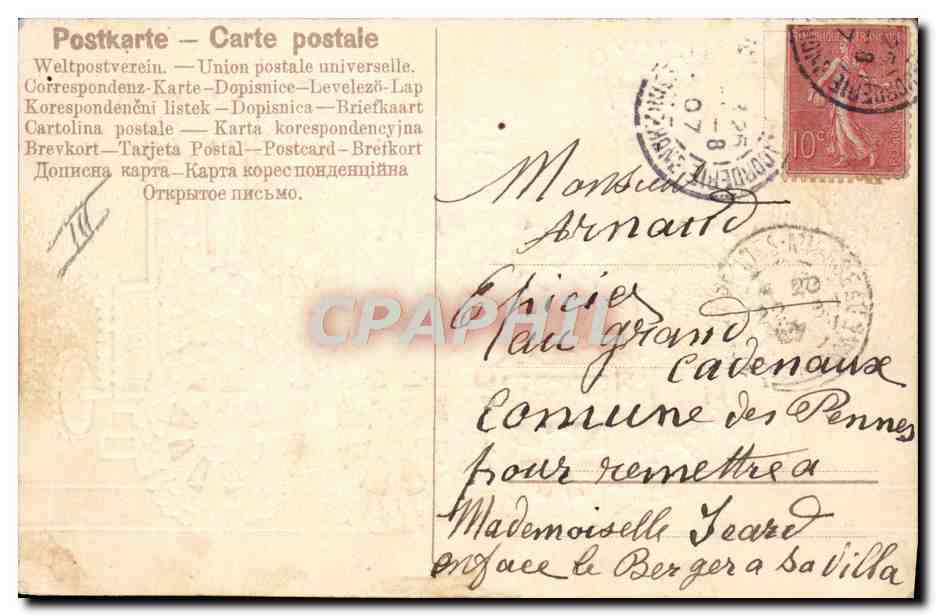 Postkarte — Carte postale
Weltpostverein. — Union postale universelle.
Correspondenz-Karte — Dopisnice — Levelező-Lap
Korespondenční listek — Dopisnica — Briefkaart
Cartolina postale — Karta korespondencyjna
Brevkort — Tarjeta Postal — Postcard — Brefkort
Дописна карта — Карта кореспонденційна
Открытое письмо.
III
10c
25 - 8
07
CPAPHIL
Monsieur
Arnaud
Epicier
au grand
Cadenaux
Comune des Pennes
pour remettre a
Mademoiselle Icard
enface le Berger a sa villa